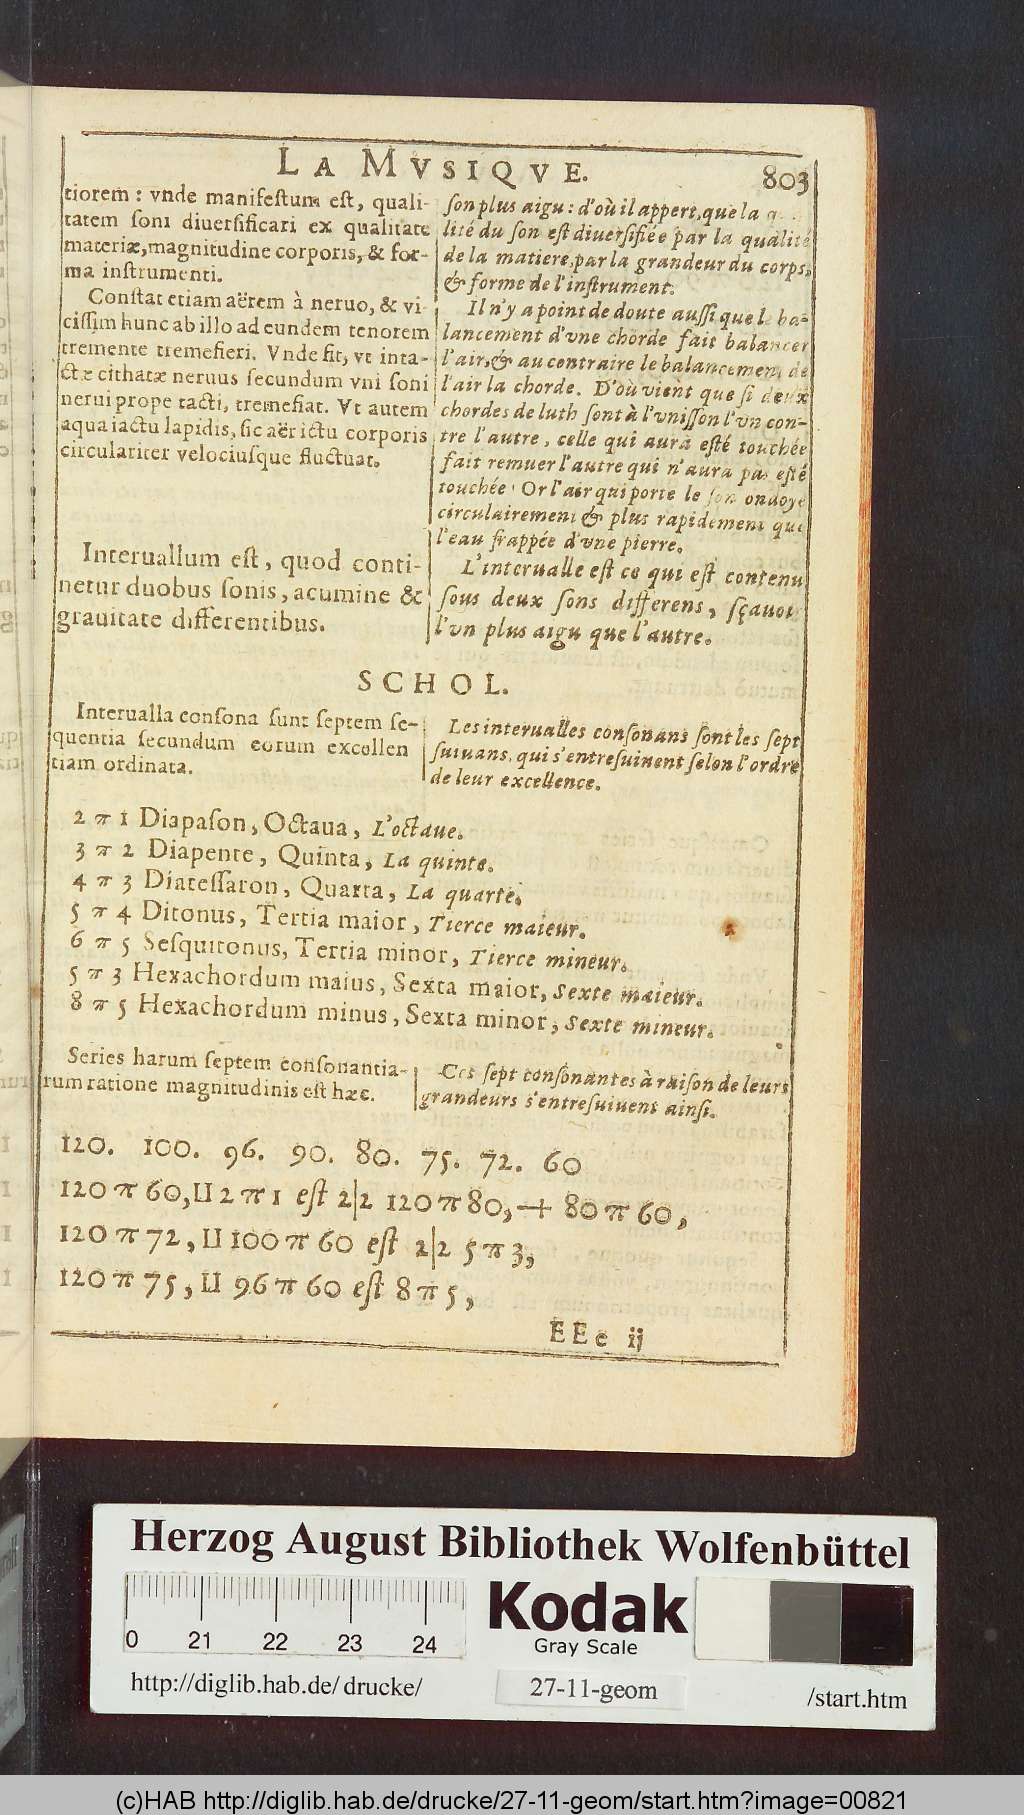 LA MVSIQVE.
803
tiorem : vnde manifestum est, quali-
tatem soni diuersificari ex qualitate
materiæ, magnitudine corporis, & for-
ma instrumenti.
Constat etiam aërem à neruo, & vi-
cissim hunc ab illo ad eundem tenorem
tremente tremefieri. Vnde fit, vt inta-
ctæ citharæ neruus secundum vni soni
nerui prope tacti, tremefiat. Vt autem
aqua iactu lapidis, sic aër ictu corporis
circulariter velociusque fluctuat.
Interuallum est, quod conti-
netur duobus sonis, acumine &
grauitate differentibus.
son plus aigu : d'où il appert, que la
lité du son est diuersifiée par la qualité
de la matiere, par la grandeur du corps,
& forme de l'instrument.
Il n'y a point de doute aussi que le ba-
lancement d'vne chorde fait balancer
l'air, & au contraire le balancement de
l'air la chorde. D'où vient que si deux
chordes de luth sont à l'vnisson l'vn con-
tre l'autre, celle qui aura esté touchée
fait remuer l'autre qui n'aura pas esté
touchée. Or l'air qui porte le son ondoye
circulairement & plus rapidement que
l'eau frappée d'vne pierre.
L'interualle est ce qui est contenu
sous deux sons differens, sçauoir
l'vn plus aigu que l'autre.
SCHOL.
Interualla consona sunt septem se-
quentia secundum eorum excellen
tiam ordinata.
Les interualles consonans sont les sept
suiuans, qui s'entresuiuent selon l'ordre
de leur excellence.
2 π 1 Diapason, Octaua, L'octaue.
3 π 2 Diapente, Quinta, La quinte.
4 π 3 Diatessaron, Quarta, La quarte.
5 π 4 Ditonus, Tertia maior, Tierce maieur.
6 π 5 Sesquitonus, Tertia minor, Tierce mineur.
5 π 3 Hexachordum maius, Sexta maior, Sexte maieur.
8 π 5 Hexachordum minus, Sexta minor, Sexte mineur.
Series harum septem consonantia-
rum ratione magnitudinis est hæc.
Ces sept consonantes à raison de leurs
grandeurs s'entresuiuent ainsi.
120. 100. 96. 90. 80. 75. 72. 60
120 π 60, ⊔ 2 π 1 est 2|2 120 π 80, + 80 π 60,
120 π 72, ⊔ 100 π 60 est 2|2 5 π 3,
120 π 75, ⊔ 96 π 60 est 8 π 5,
EEe ij
Herzog August Bibliothek Wolfenbüttel
0 21 22 23 24
Kodak
Gray Scale
http://diglib.hab.de/ drucke/
27-11-geom
/start.htm
(c)HAB http://diglib.hab.de/drucke/27-11-geom/start.htm?image=00821